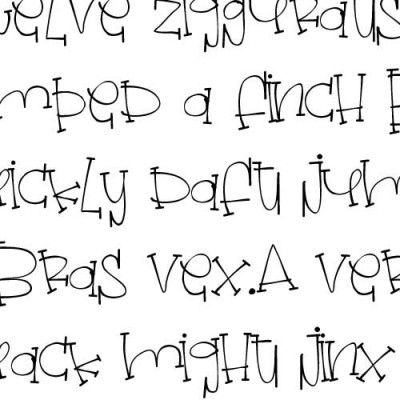 elve ziggurats
mped a finch B
ickly Daft jum
Bras vex.A ver
lack might jinx